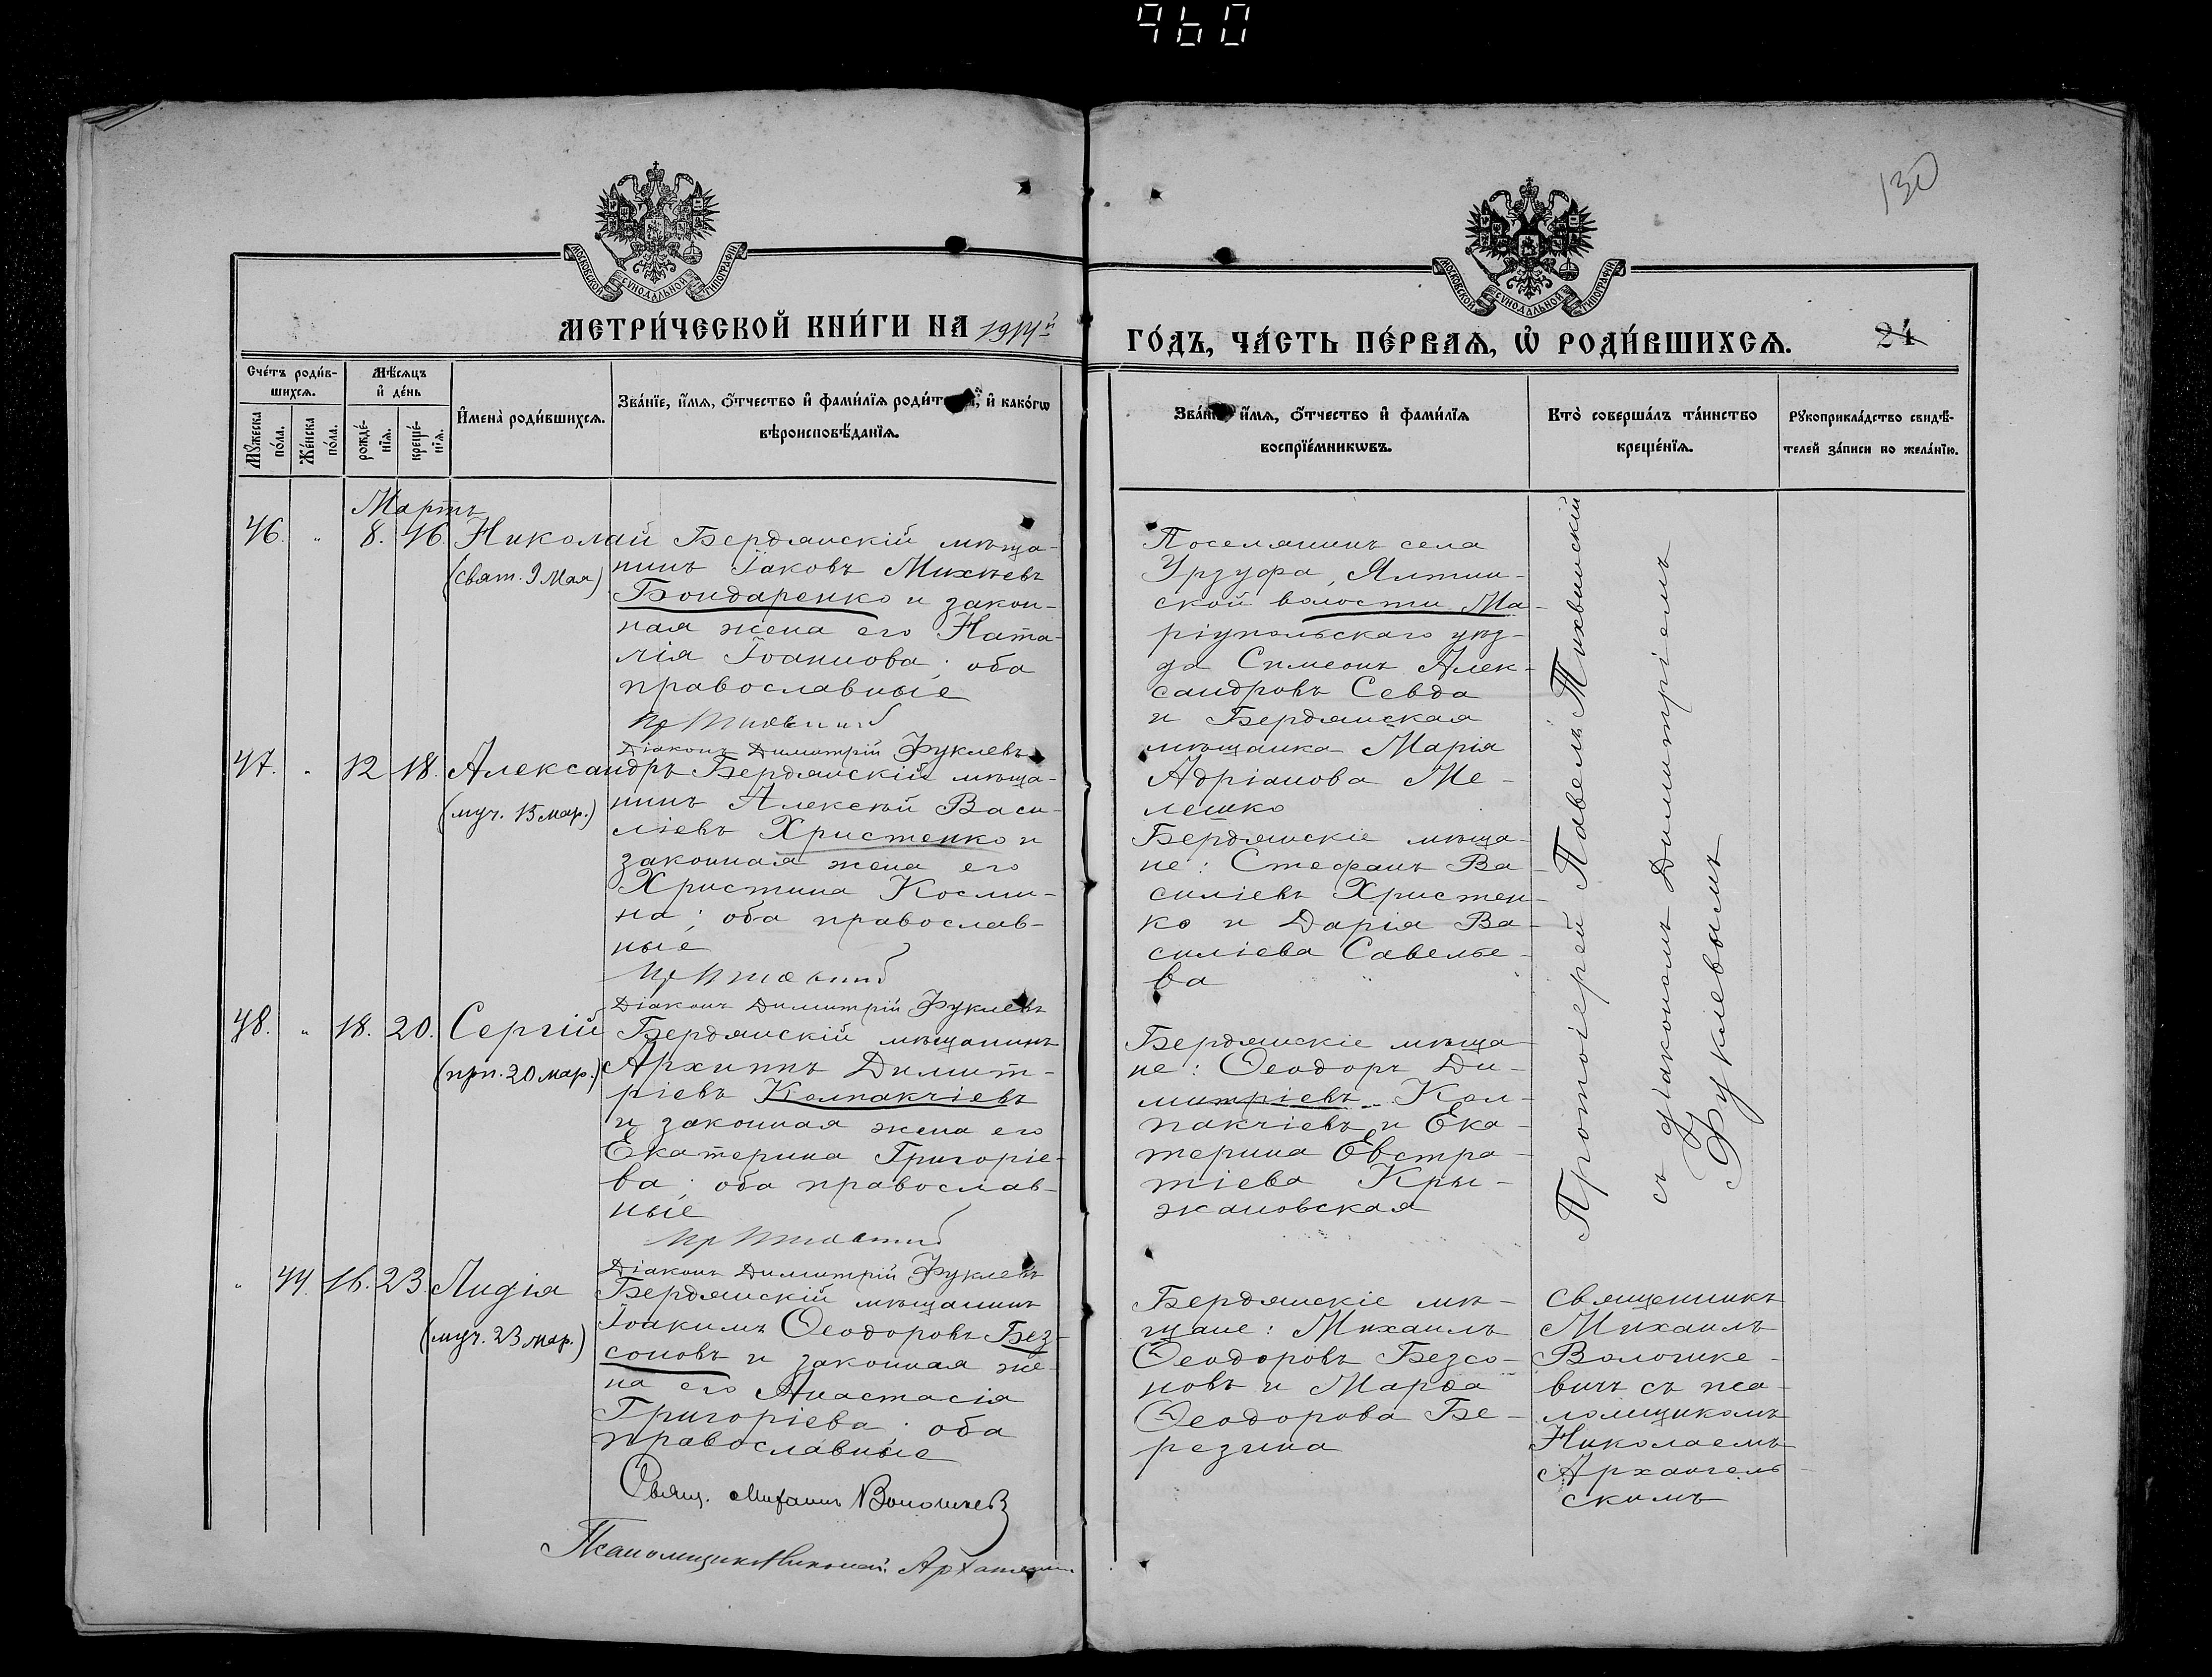 960
130
МОСКОВСКОЙ СѴНОДАЛЬНОЙ ТИПОГРАФІИ
МОСКОВСКОЙ СѴНОДАЛЬНОЙ ТИПОГРАФІИ
МЕТРИ́ЧЕСКОЙ КНИ́ГИ НА 1914й
ГО́ДЪ, ЧА́СТЬ ПЕ́РВАѦ, Ѡ҆ РОДИ́ВШИХСѦ.
24
Сче́тъ роди́в-
шихсѧ.
Мꙋ́жеска по́ла.
Же́нска по́ла.
Мѣ́сѧцъ
и҆ де́нь
рожде́-
нїѧ.
креще́-
нїѧ.
И҆мена̀ роди́вшихсѧ.
Зва́нїе, и҆́мѧ, ѻ҆́тчество и҆ фами́лїѧ роди́т и҆ како́гѡ
вѣроисповѣ́данїѧ.
Зва́нїе и҆́мѧ, ѻ҆́тчество и҆ фами́лїѧ
воспрїе́мникѡвъ.
Кто̀ соверша́лъ та́инство
креще́нїѧ.
Рꙋкоприкла́дство свидѣ́-
телей за́писи по жела́нїю.
Мартъ
46. " 8. 16. Николай
(свят. 9 Мая)
Бердянскій мѣща-
нинъ Іаковъ Михѣевъ
Бондаренко и закон-
ная жена его Ната-
лія Іоаннова; оба
православные
Діаконъ Димитрій Фуклевъ
Поселянинъ села
Урзуфа, Ялтин-
ской волости Ма-
ріупольскаго уѣз-
да Симеонъ Алек-
сандровъ Севда
и Бердянская
мѣщанка Марія
Адріанова Ме-
лешко
47. " 12 18. Александръ
(муч. 15 мар.)
Бердянскій мѣща-
нинъ Алексѣй Васи-
ліевъ Христенко и
законная жена его
Христина Косми-
на; оба православ-
ные
Діаконъ Димитрій Фуклевъ
Бердянскіе мѣща-
не: Стефанъ Ва-
силіевъ Христен-
ко и Дарія Ва-
силіева Савелье-
ва
48. " 18. 20. Сергій
(прп. 20 мар.)
Бердянскій мѣщанинъ
Архиппъ Димит-
ріевъ Колпакчіевъ
и законная жена его
Екатерина Григоріе-
ва; оба православ-
ные
Діаконъ Димитрій Фуклевъ
Бердянскіе мѣща-
не: Ѳеодоръ Ди-
митріевъ Кол-
пакчіевъ и Ека-
терина Евстра-
тіева Кры-
жановская
Протоіерей Павелъ Тихвинскій
съ діакономъ Димитріемъ
Фуклевымъ
" 44. 16. 23. Лидія
(муч. 23 мар.)
Бердянскій мѣщанинъ
Іоакимъ Ѳеодоровъ Без-
соновъ и законная же-
на его Анастасія
Григоріева; оба
православные
Свящ. Михаилъ
Псаломщикъ Николай
Бердянскіе мѣ-
щане: Михаилъ
Ѳеодоровъ Безсо-
новъ и Марѳа
Ѳеодорова Бе-
резина
Священникъ
Михаилъ
Волошке-
вичъ съ пса-
ломщикомъ
Николаемъ
Архангель-
скимъ